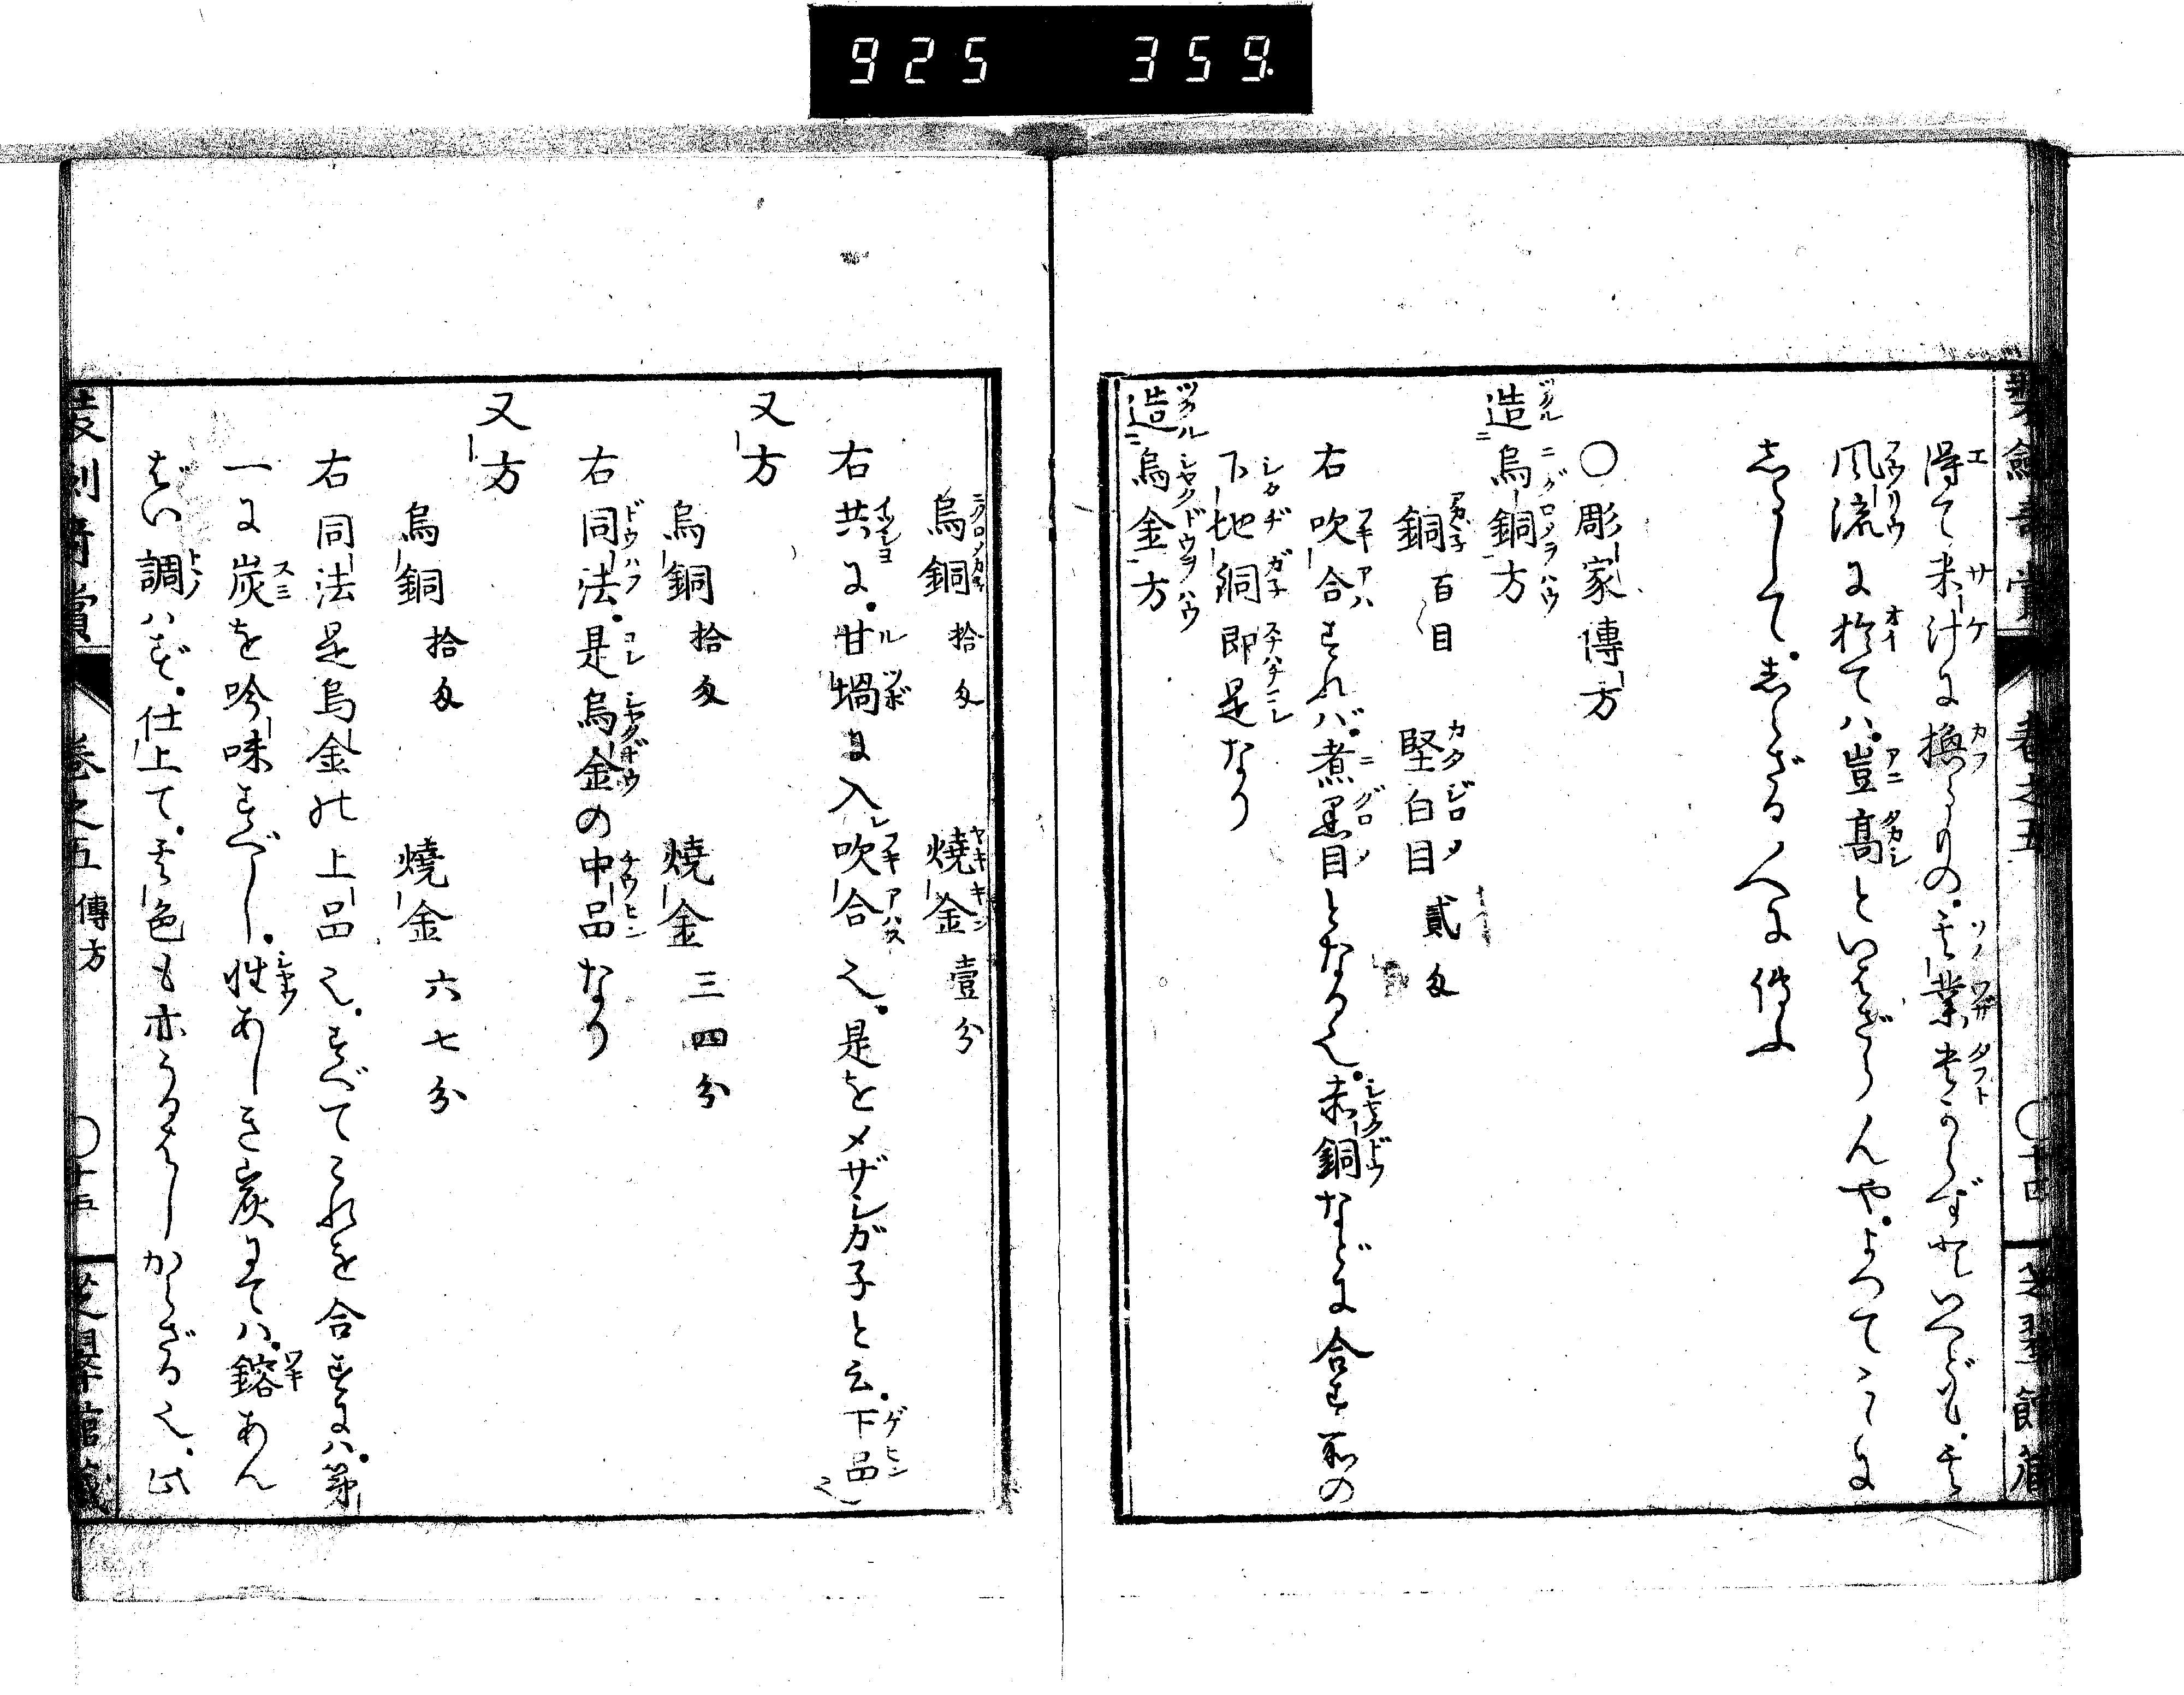 925 359.
得て来汁に換るもの。其業貴からずといへども。其
風流に於てハ。豈高といはざらんや。よつてこゝに
志るして。志らざる人に傳ふ
○彫家傳方
造烏銅方
銅 百目 堅白目 貳匁
右吹合すれバ。煮黒目となる也。赤銅などに合す所の
下地銅即是なり
造烏金方
烏銅 拾匁 燒金 壹分
右共に。甘堝に入レ吹合也。是をメザシガ子と云。下品也
又方
烏銅 拾匁 燒金 三四分
右同法。是烏金の中品なり
又方
烏銅 拾匁 燒金 六七分
右同法是烏金の上品也。すべてこれを合すにハ。第
一に炭を吟味すべし。性あしき炭にてハ。鎔あん
ばい調ハず。仕上て。其色も亦うるはしからざる也。此
卷之五 傳方 ○十五